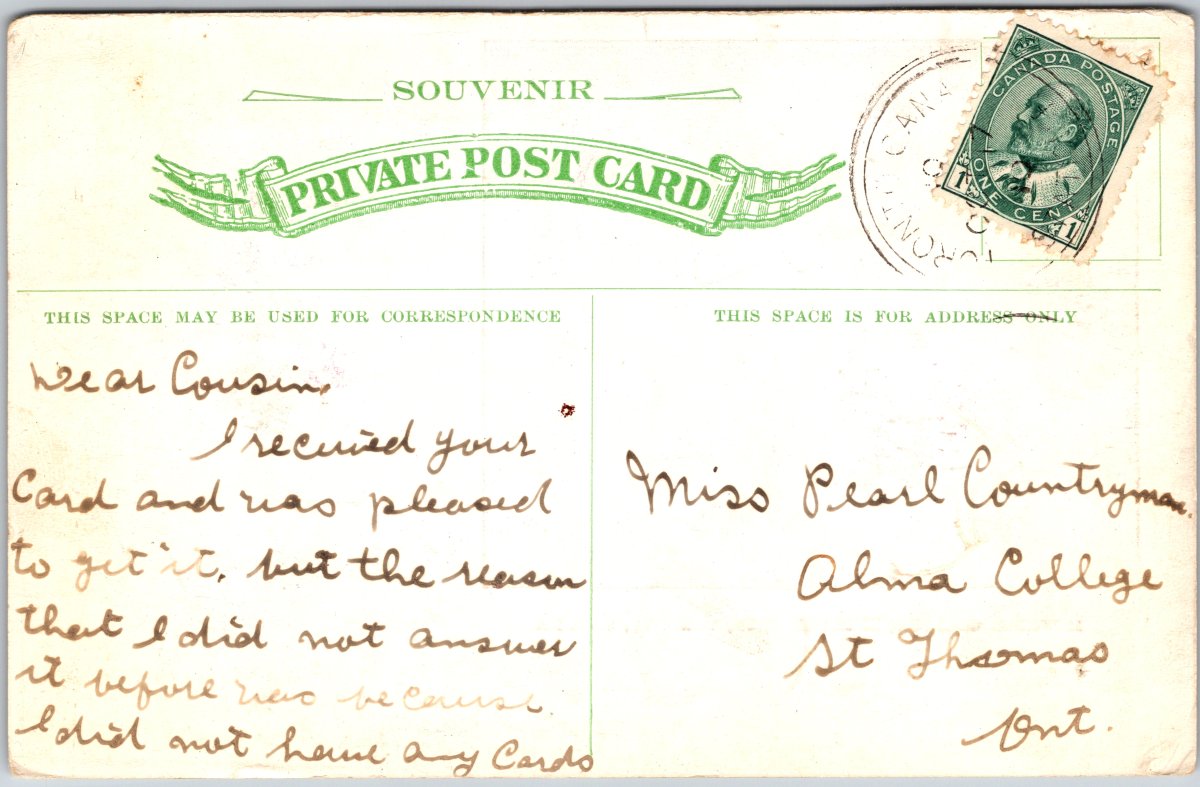 SOUVENIR
PRIVATE POST CARD
CANADA POSTAGE
1 ONE CENT 1
THIS SPACE MAY BE USED FOR CORRESPONDENCE
Dear Cousin,
I received your
Card and was pleased
to get it, but the reason
that I did not answer
it before was because
I did not have any Cards
THIS SPACE IS FOR ADDRESS ONLY
Miss Pearl Countryman.
Alma College
St Thomas
Ont.